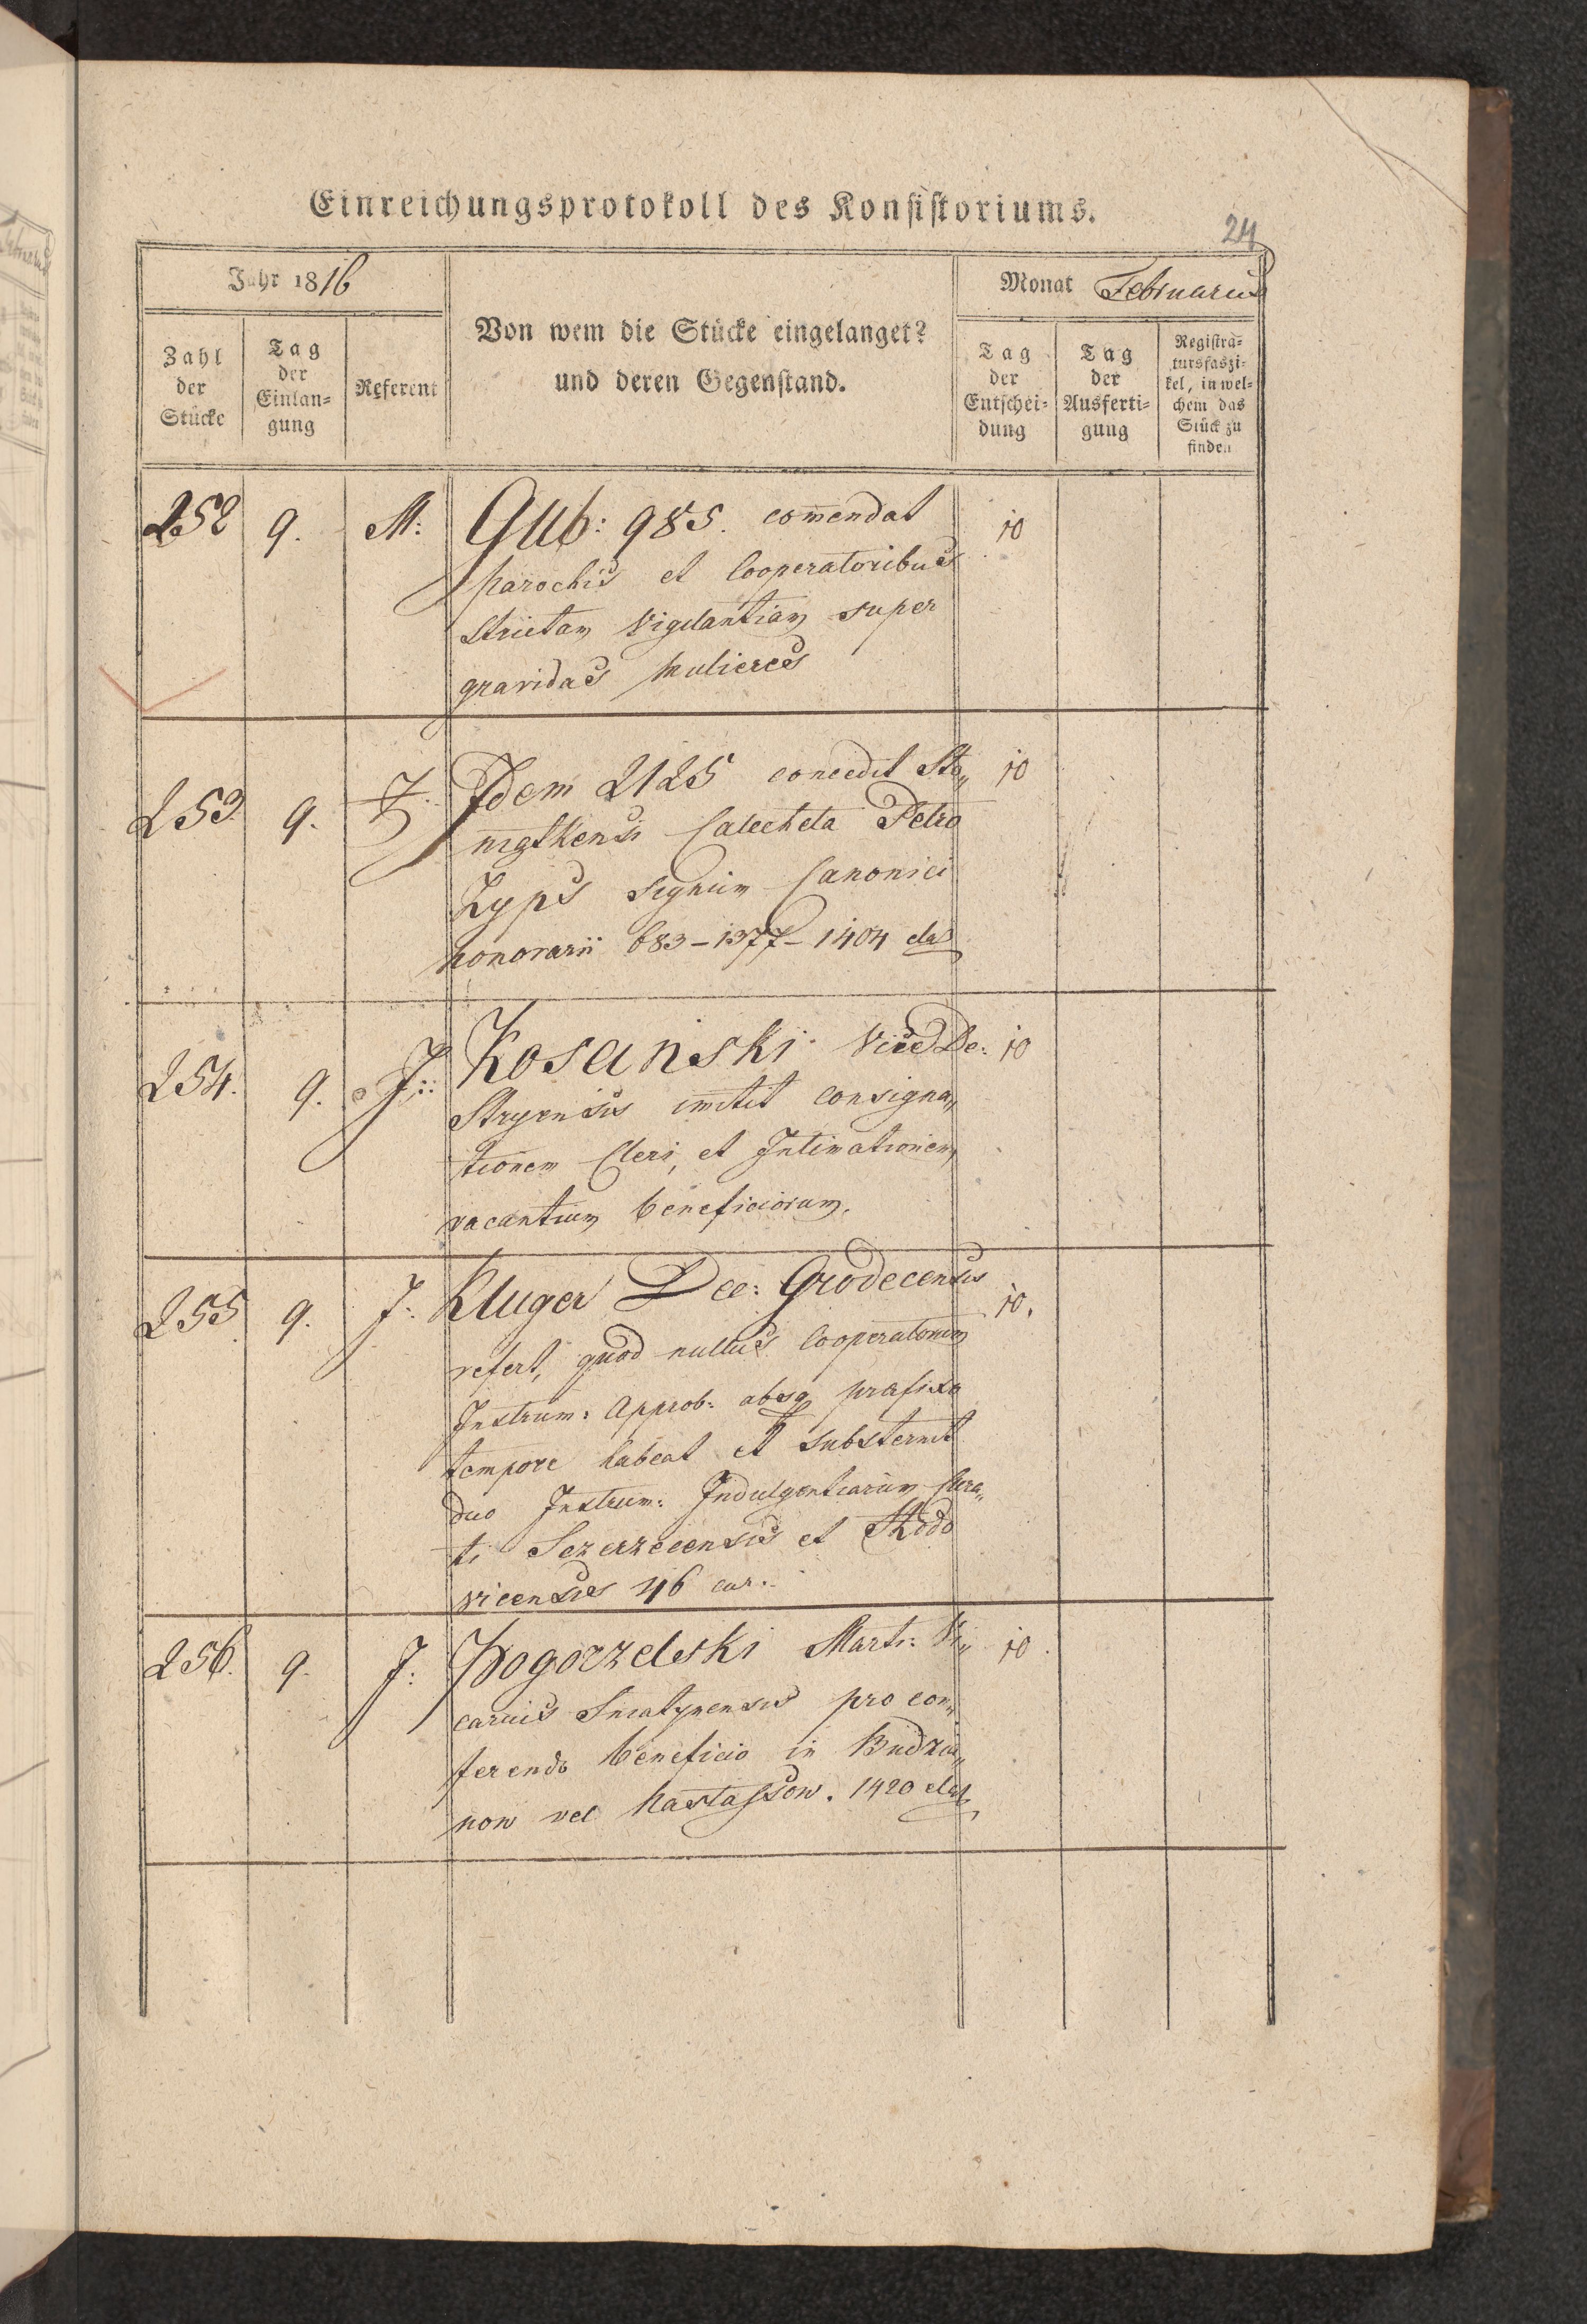 Einreichungsprotokoll des Konsistoriums.
24
Jahr 1816
Von wem die Stücke eingelanget?
und deren Gegenstand.
Monat Februarius
Zahl
der
Stücke
Tag
der
Einlan=
gung
Referent
Tag
der
Entschei=
dung
Tag
der
Ausferti=
gung
Registra=
tursfaszi=
kel, in wel=
chem das
Stück zu
finden
252 9. M: Gub: 985. com̄endat 10
parochis et Cooperatoribus
strictam Vigilantiam super
gravidas mulieres
253 9. Idem 2125 concedit 10
Catecheta Petro
Zyps signum Canonici
honorarii 683-1377-1404
254. 9. J: Kosanski Vice De: 10
Stryensis im̄itit consigna„
tionem Cleri, et Intimationem
vacantium beneficiorum.
255 9. J: Kluger Dec: Grodecensis 10.
refert, quod nullus Cooperatorum
Instrum: Approb: absq praefixo
tempore habeat et substernit
duo Instrum: Indulgentiarum
ti Sczerzecensis et
vicensis 46 cur.
256. 9. J: Pogorzelski Mart: Vi„ 10.
carius Sniatynensis pro con„
ferendo beneficio in Budza„
now vel Kastassow. 1420